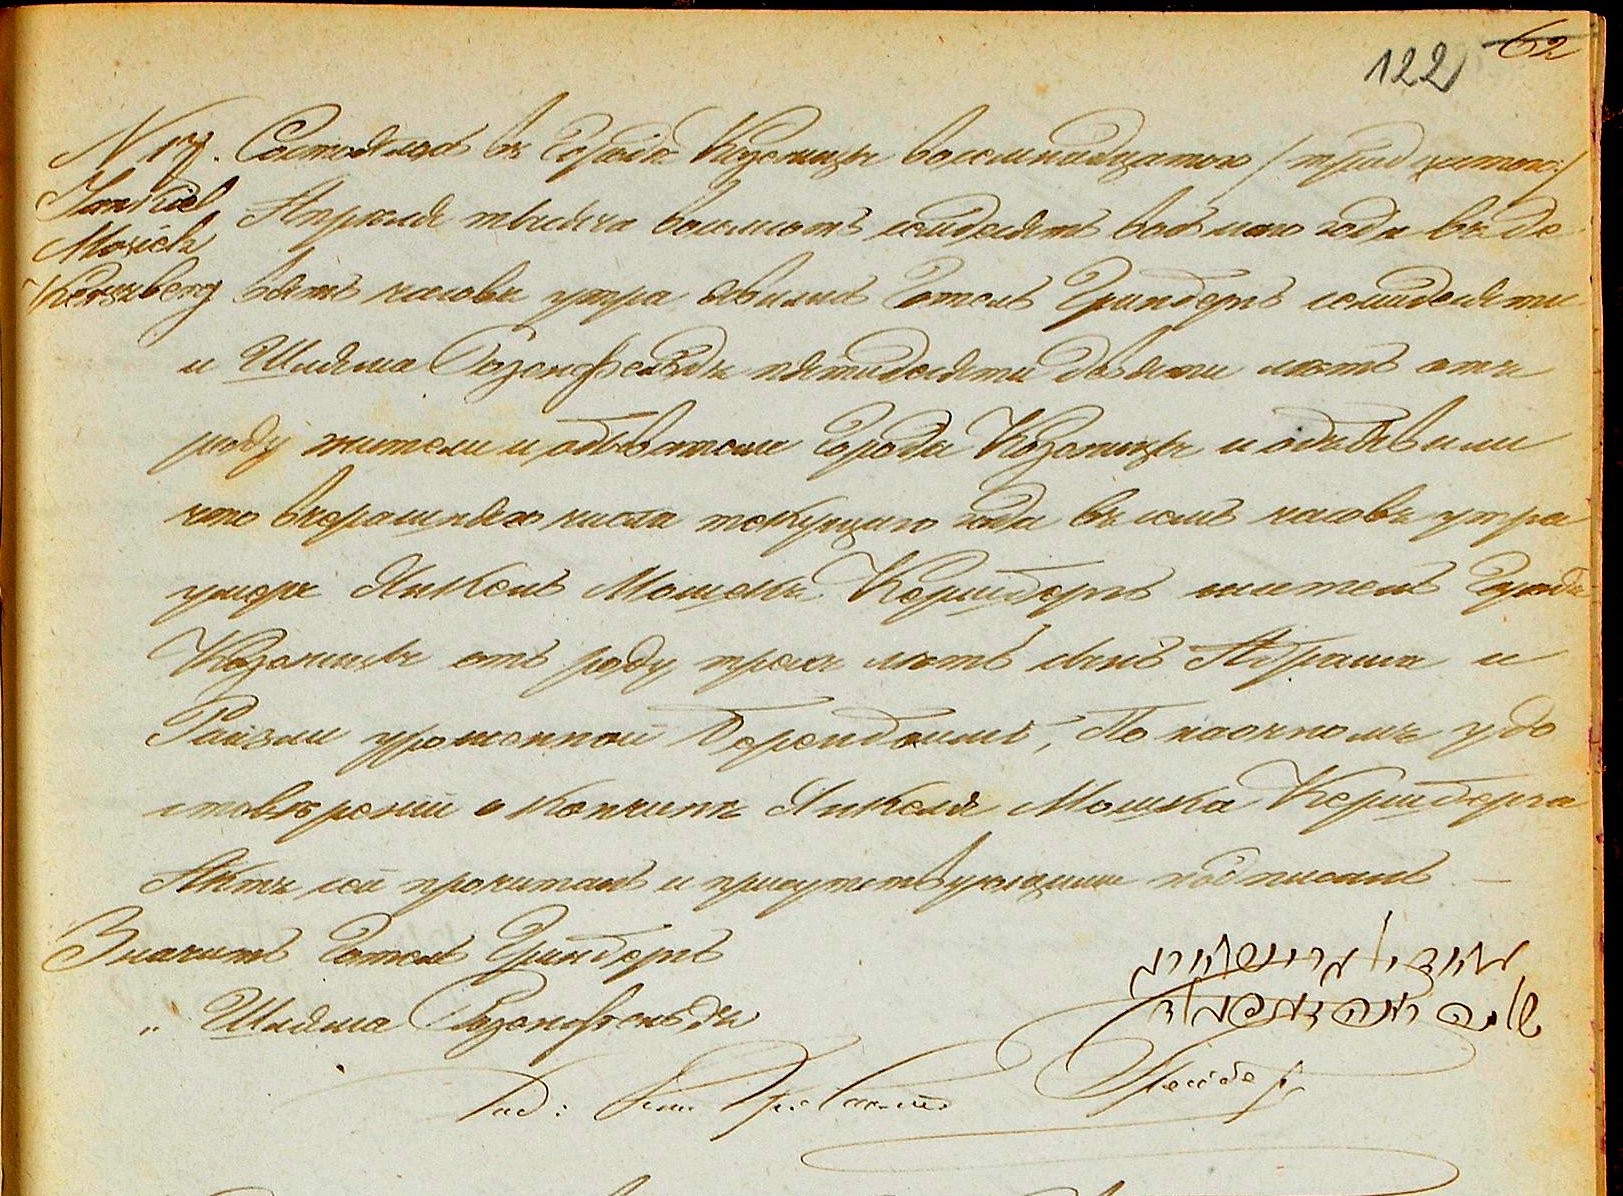 122 62
N 17. Состоялось въ городѣ Козеницы восемнадцатого /тридцатого/
Jankiel Апреля тысяча восемьсотъ семдесятъ восмаго года въ де
Moszek
Kerszberg вять часовъ утра явились Готель Гринбергъ семидесяти
и Шляма Розенфельдъ пятидесяти девяти лѣтъ отъ
роду жители и обыватели города Козеницы и объявили
что вчерашняго числа текущаго года въ семь часовъ утра
умеръ Янкель Мошекъ Кершбергъ житель города
Козеницы отъ роду трехъ лѣтъ сынъ Абрама и
Райзли урожденной Беренбаумъ, По наочномъ удо
стовѣреніи о кончинѣ Янкеля Мошка Кершберга
Актъ сей прочитанъ и присутствующими подписанъ
Значитъ Готель Гринбергъ
„ Шляма Розенфельдъ